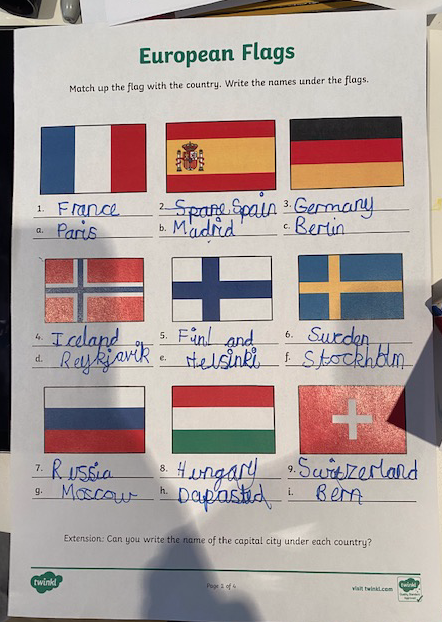 European Flags
Match up the flag with the country. Write the names under the flags.
1. France
2. Spane Spain
3. Germany
a. Paris
b. Madrid
c. Berlin
4. Iceland
5. Finland
6. Sweden
d. Reykjavik
e. Helsinki
f. Stockholm
7. Russia
8. Hungary
9. Switzerland
g. Moscow
h.
i. Bern
Extension: Can you write the name of the capital city under each country?
twinkl
Page 2 of 4
visit twinkl.com
twinkl